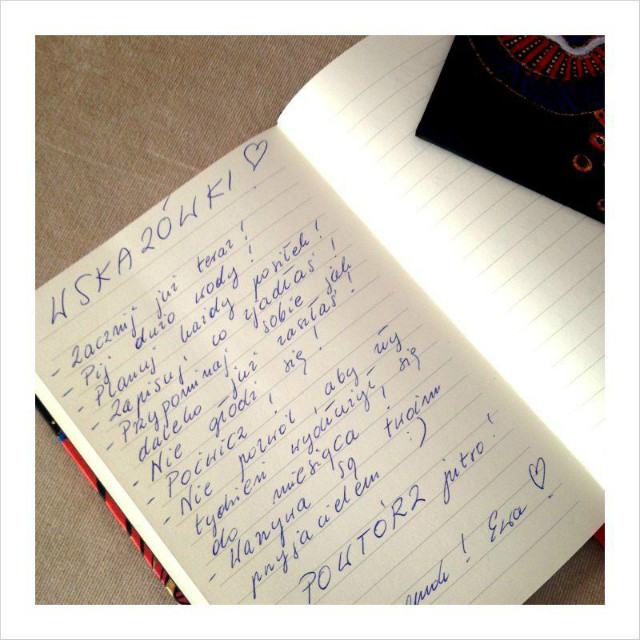 WSKAZÓWKI ♡
- Zacznij już teraz!
- Pij dużo wody!
- Planuj każdy posiłek!
- Zapisuj co zjadłaś!
- Przypominaj sobie jak
daleko już zaszłaś!
- Nie głódź się!
- Poćwicz!
- Nie pozwól, aby wy
tydzień wydłużył się
do miesiąca!
- Warzywa są twoim
przyjacielem :)
POWTÓRZ jutro!
! Ewa ♡